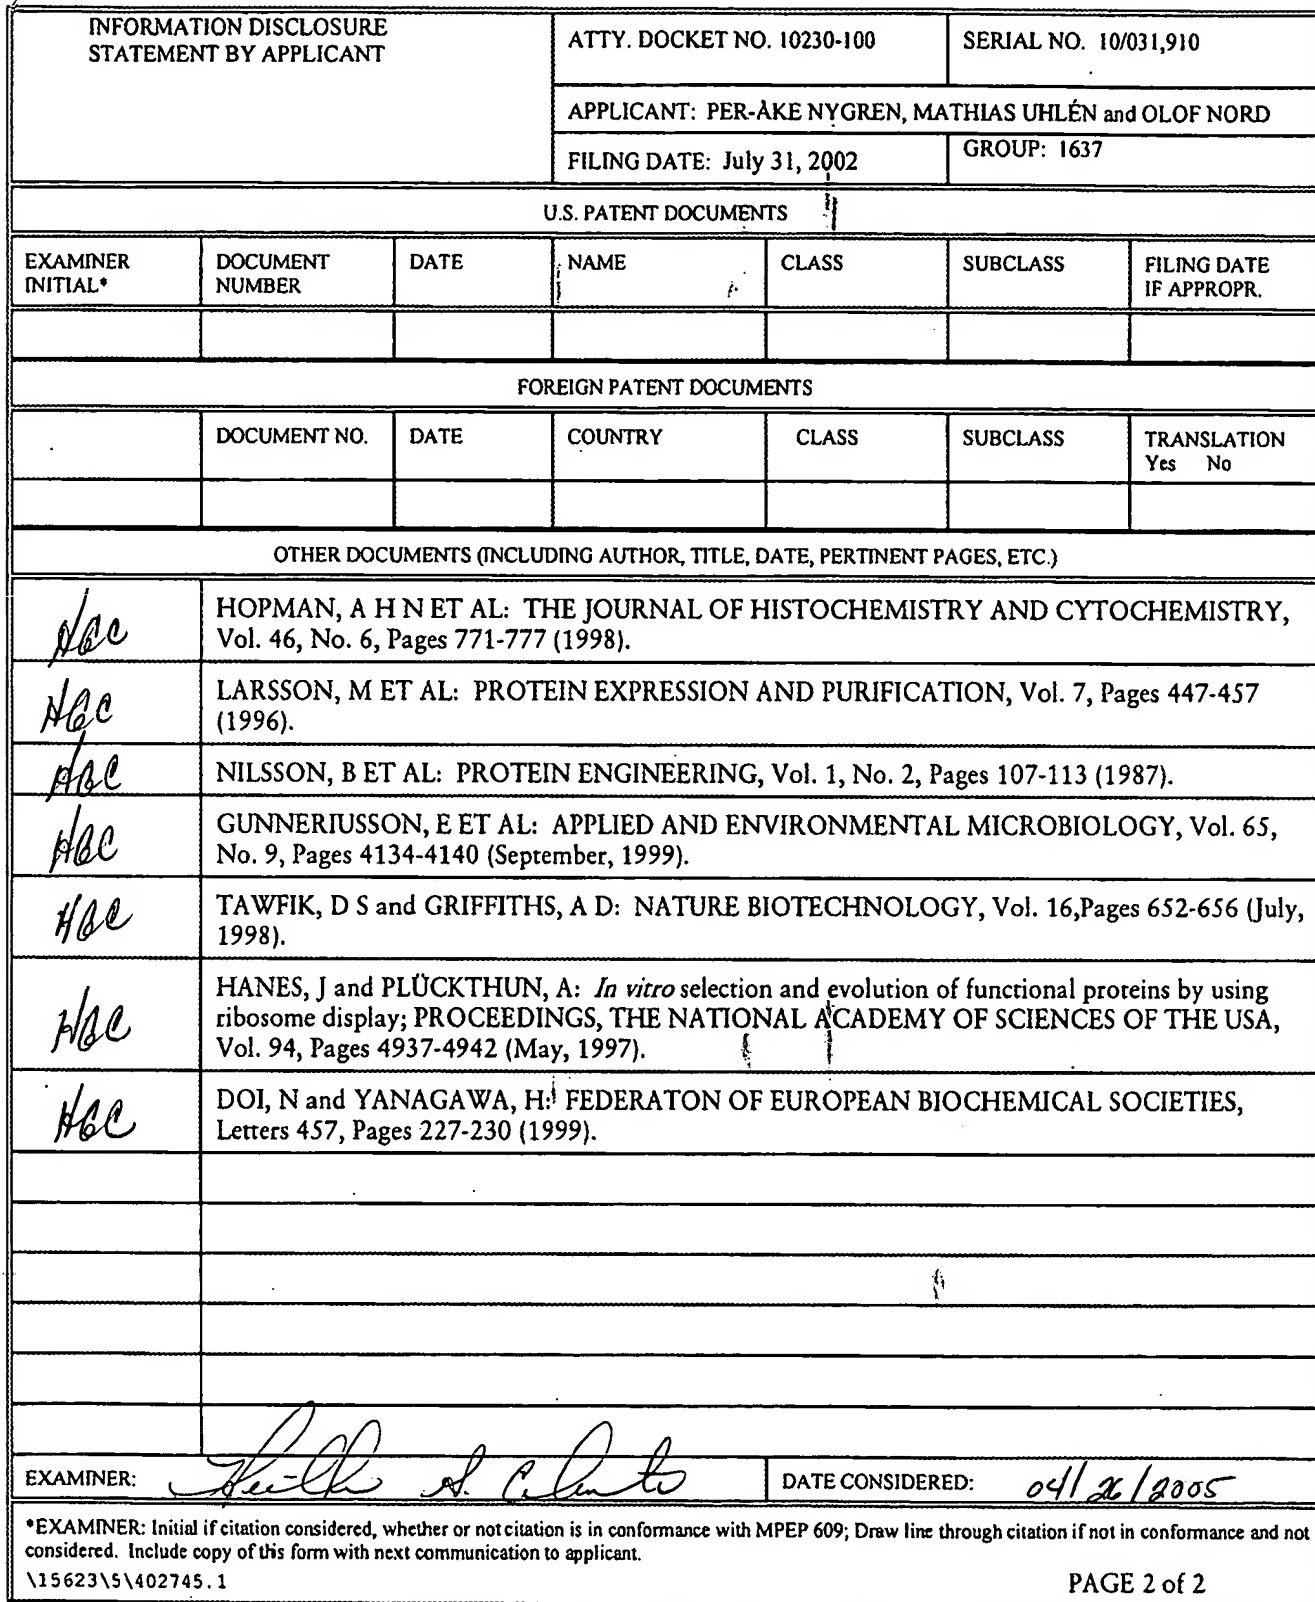 INFORMATION DISCLOSURE
STATEMENT BY APPLICANT
ATTY. DOCKET NO. 10230-100
SERIAL NO. 10/031,910
APPLICANT: PER-ÅKE NYGREN, MATHIAS UHLÉN and OLOF NORD
FILING DATE: July 31, 2002
GROUP: 1637
U.S. PATENT DOCUMENTS
EXAMINER
INITIAL*
DOCUMENT
NUMBER
DATE
NAME
CLASS
SUBCLASS
FILING DATE
IF APPROPR.
FOREIGN PATENT DOCUMENTS
DOCUMENT NO.
DATE
COUNTRY
CLASS
SUBCLASS
TRANSLATION
Yes No
OTHER DOCUMENTS (INCLUDING AUTHOR, TITLE, DATE, PERTINENT PAGES, ETC.)
HOPMAN, A H N ET AL: THE JOURNAL OF HISTOCHEMISTRY AND CYTOCHEMISTRY,
Vol. 46, No. 6, Pages 771-777 (1998).
LARSSON, M ET AL: PROTEIN EXPRESSION AND PURIFICATION, Vol. 7, Pages 447-457
(1996).
NILSSON, B ET AL: PROTEIN ENGINEERING, Vol. 1, No. 2, Pages 107-113 (1987).
GUNNERIUSSON, E ET AL: APPLIED AND ENVIRONMENTAL MICROBIOLOGY, Vol. 65,
No. 9, Pages 4134-4140 (September, 1999).
TAWFIK, D S and GRIFFITHS, A D: NATURE BIOTECHNOLOGY, Vol. 16,Pages 652-656 (July,
1998).
HANES, J and PLÜCKTHUN, A: In vitro selection and evolution of functional proteins by using
ribosome display; PROCEEDINGS, THE NATIONAL ACADEMY OF SCIENCES OF THE USA,
Vol. 94, Pages 4937-4942 (May, 1997).
DOI, N and YANAGAWA, H: FEDERATON OF EUROPEAN BIOCHEMICAL SOCIETIES,
Letters 457, Pages 227-230 (1999).
EXAMINER:
DATE CONSIDERED: 04/26/2005
*EXAMINER: Initial if citation considered, whether or not citation is in conformance with MPEP 609; Draw line through citation if not in conformance and not
considered. Include copy of this form with next communication to applicant.
\15623\5\402745.1
PAGE 2 of 2